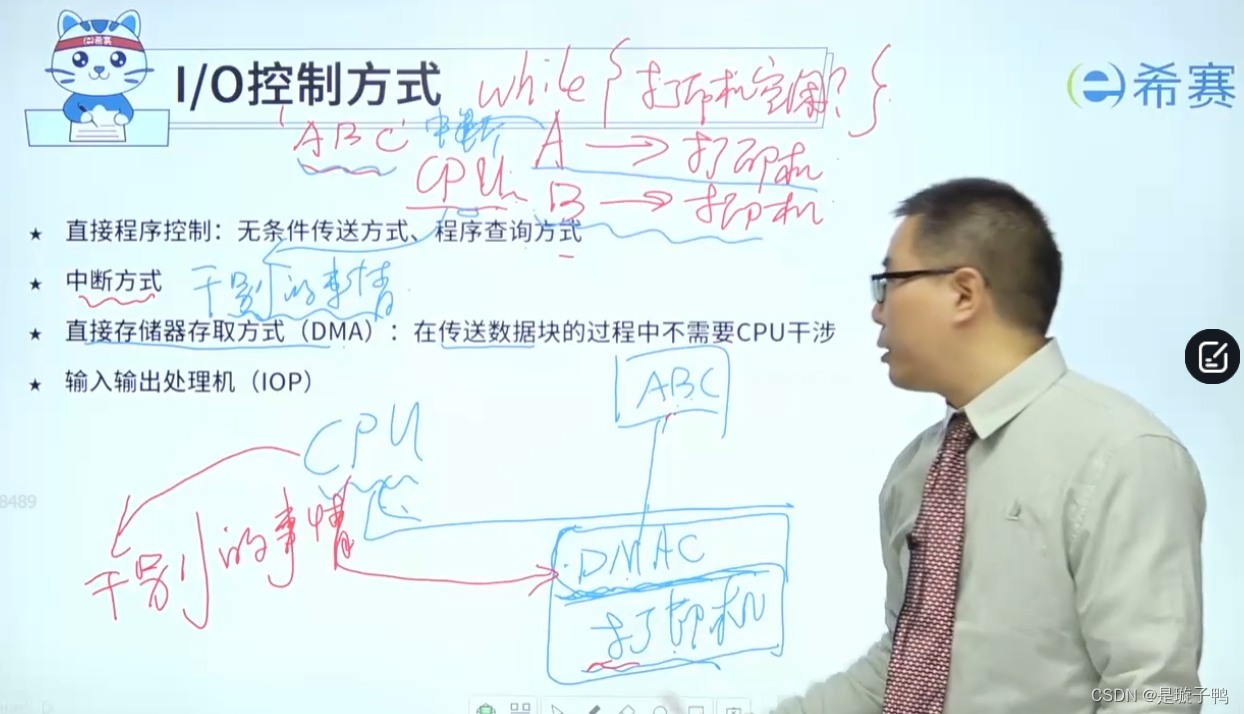 希赛
I/O控制方式
while{打印机空闲?}
希赛
'ABC' 中断 A → 打印机
CPU B → 打印机
★ 直接程序控制：无条件传送方式、程序查询方式
★ 中断方式 干别的事情
★ 直接存储器存取方式（DMA）：在传送数据块的过程中不需要CPU干涉
★ 输入输出处理机（IOP）
ABC
CPU
8489
干别的事情
DMAC
打印机
CSDN @是璇子鸭